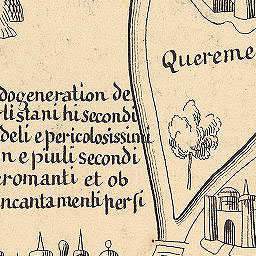 Quereme
dogeneration de
listani hi secondi
deli e pericolosissimi
n e piuli secondi
romanti et ob
ncantamenti per si